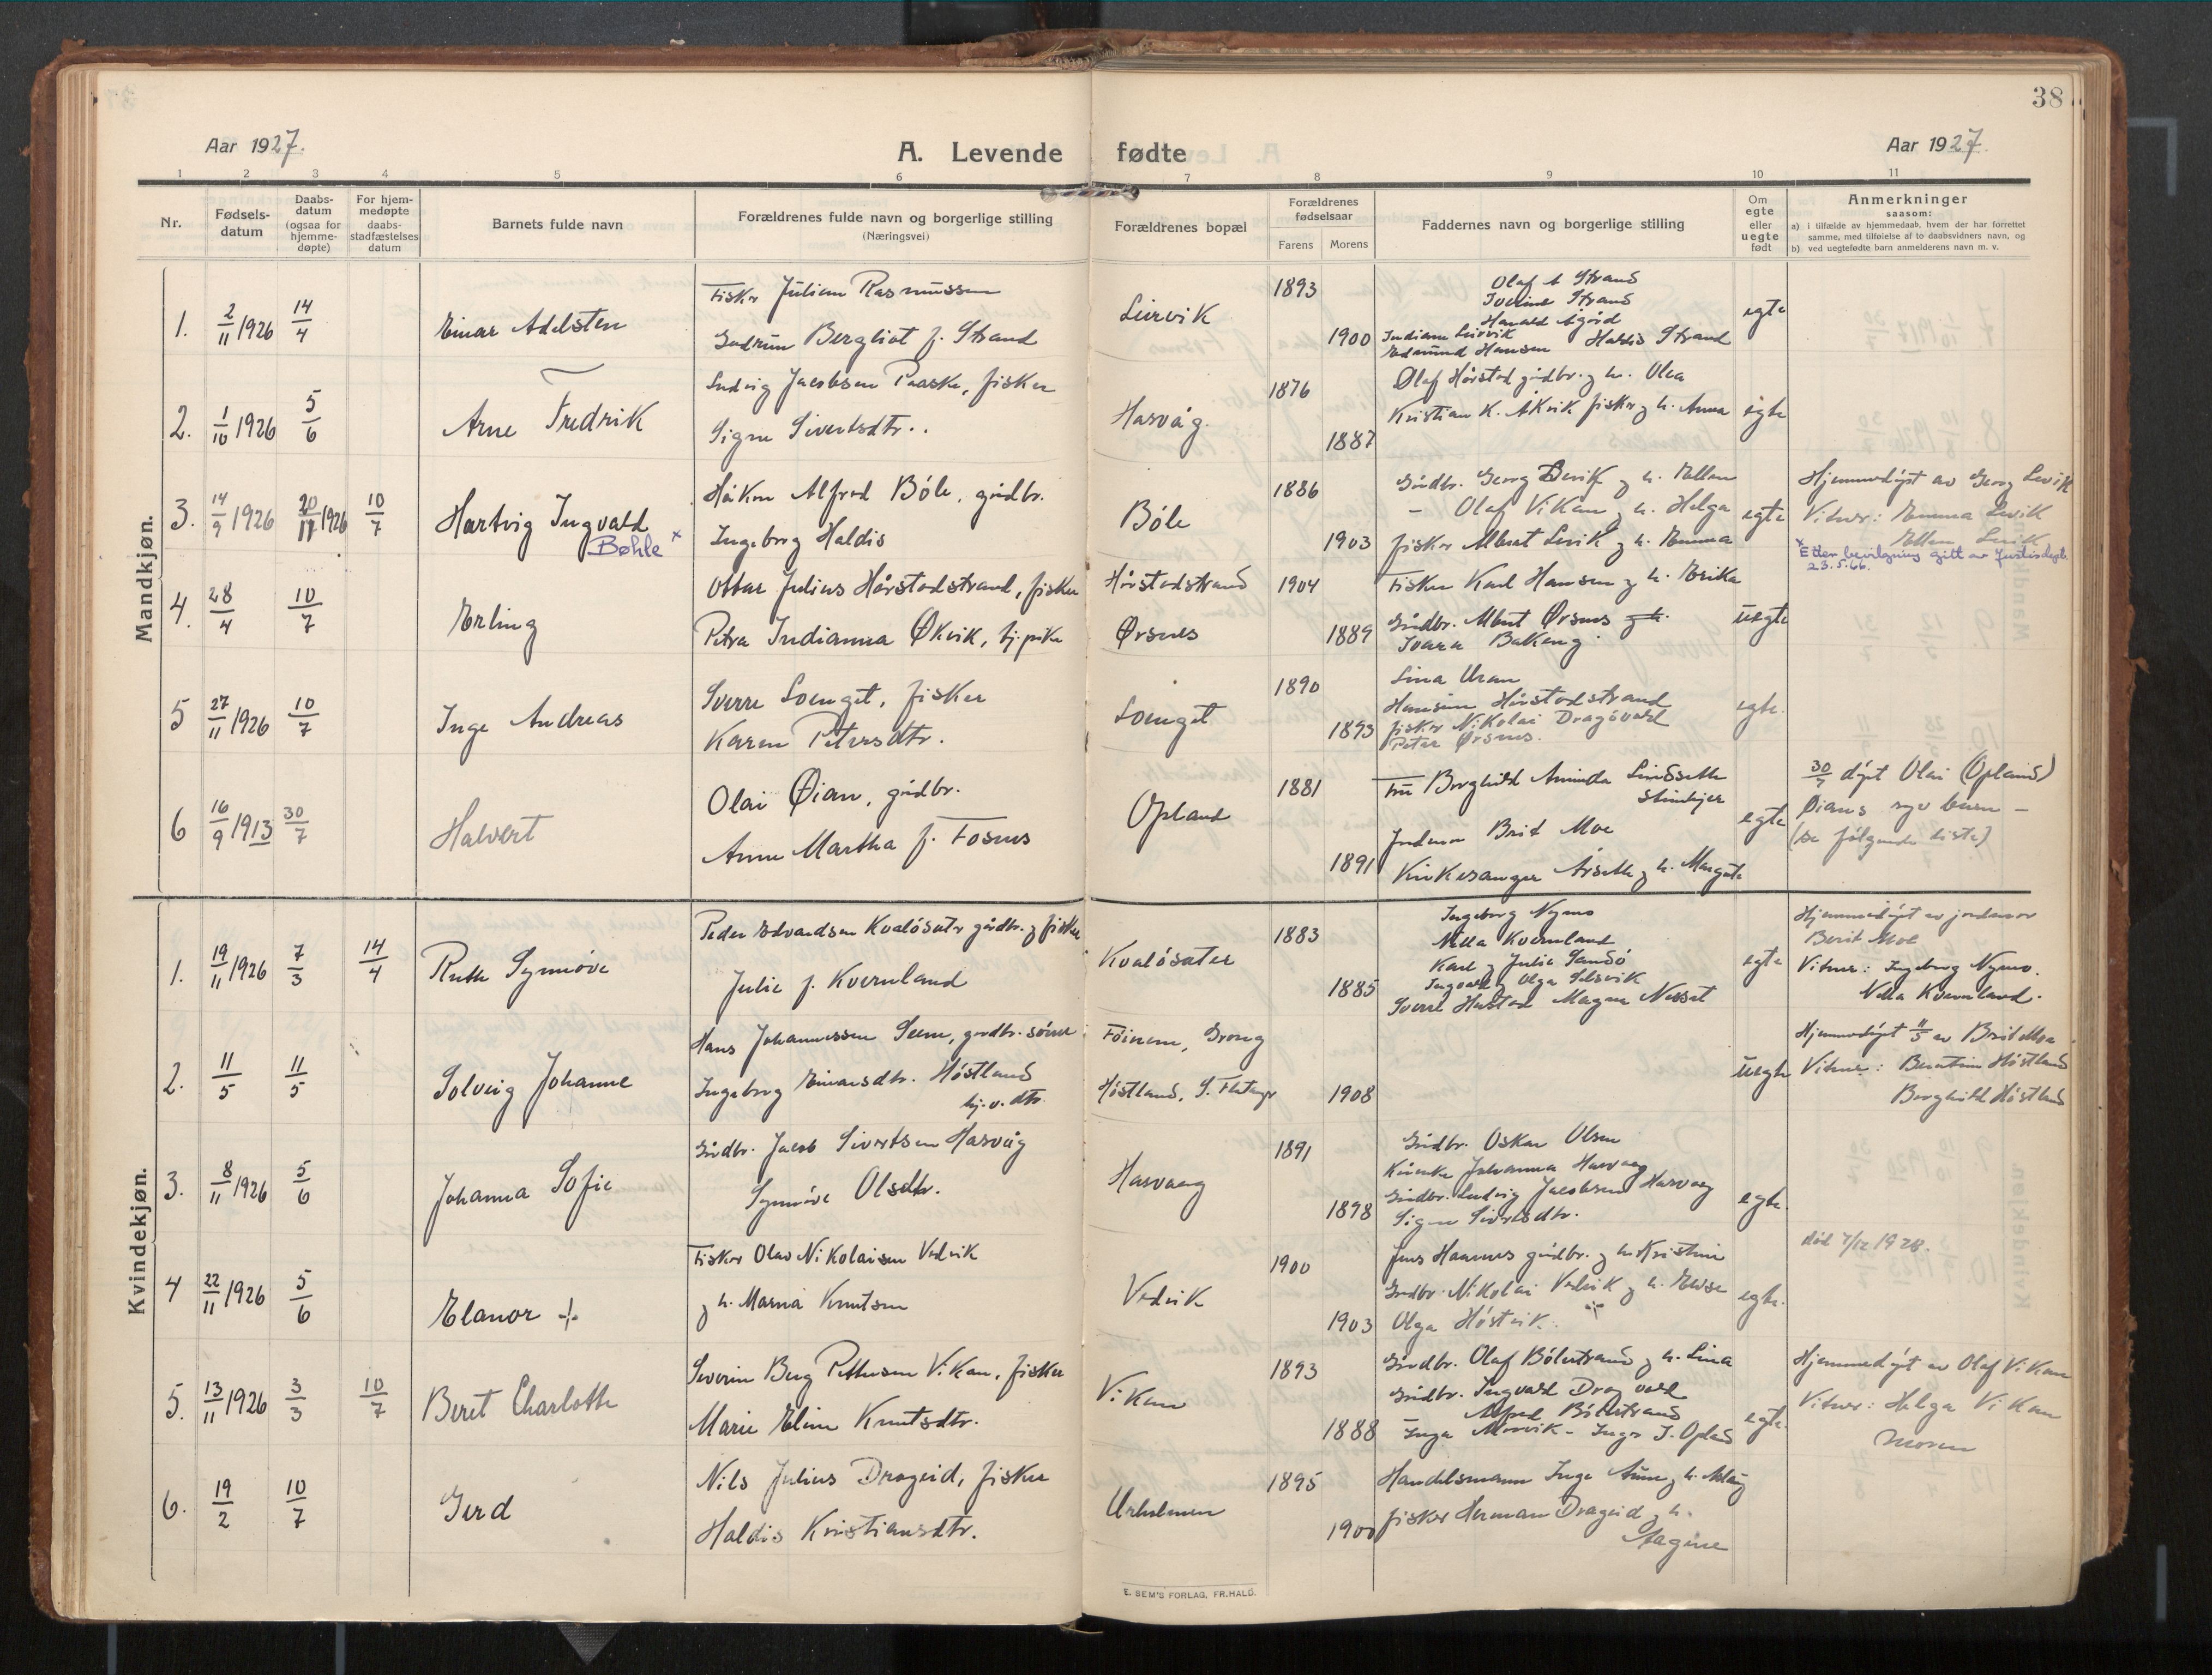 38
Aar 1927.
A. Levende fødte
Aar 1927.
1 2 3 4 5 6 7 8 9 10 11
Nr.
Fødsels-
datum
Daabs-
datum
(ogsaa for
hjemme-
døpte)
For hjem-
medøpte
daabs-
stadfæstelses
datum
Barnets fulde navn
Forældrenes fulde navn og borgerlige stilling
(Næringsvei)
Forældrenes bopæl
Forældrenes
fødselsaar
Farens Morens
Faddernes navn og borgerlige stilling
Om
egte
eller
uegte
født
Anmerkninger
saasom:
a) i tilfælde av hjemmedaab, hvem der har forrettet
samme, med tilføielse af to daabsvidners navn, og
b) ved uegtefødte barn anmelderens navn m. v.
Mandkjøn.
1. 2/11 1926 14/4 Einar Adelsten
Fisker Julian Rasmussen
Gudrun Bergliot f. Strand
Leirvik
1893
1900
Olaf A Strand
Iverine Strand
Harald Agård
Indiane Leirvik
Haldis Strand
Edmund Hansen
egte
2. 1/10 1926 5/6 Arne Fredrik
Ludvig Jacobsen Paaske, fisker
Signe Sivertsdtr.
Hasvåg.
1876
1887
Olaf Hårstad gårdbr. og h. Olea
Kristian K. Åkvik fisker og h. Anna
egte
3. 14/9 1926 20/11 1926 10/7 Hartvig Ingvald
Bøhle x
Håkon Alfred Bøle, gårdbr.
Ingeborg Haldis
Bøle
1886
1903
Gårdbr. Georg Levik og h. Ellen
- Olaf Vikan og h. Helga
fisker Albert Levik og h. Emma
egte
Hjemmedøpt av Georg Levik
Vitner: Emma Levik
Ellen Levik
x Etter bevilgning gitt av Justisdept.
23.5.66.
4. 28/4 10/7 Erling
Ottar Julius Hårstadstrand, fisker
Petra Indianna Økvik, tj. pike
Hårstadstrand
Ørsnes
1904
1889
Fisker Karl Hansen og h. Erika
Gårdbr. Albert Ørsnes og h.
Ivara Bakeng
uegte
5 27/11 1926 10/7 Inge Andreas
Sverre Loenget, fisker
Karen Petersdtr.
Loenget
1890
1893
Lina Uran
Hansine Hårstadstrand
fisker Nikolai Dragåvold
Peter Ørsnes.
egte.
6 16/9 1913 30/7 Halvert
Olai Øian, gårdbr.
Anne Martha f. Fosnes
Opland
1881
1891
Fru Borghild Aminda Lindseth
Steinkjer
Jordmor Brit Moe
Kirkesanger Årseth og h. Margete
egte
30/7 døpt Olai (Opland)
Øians syv barn -
(se følgende liste)
Kvindekjøn.
1. 19/11 1926 7/3 14/4 Ruth Synnøve
Peder Edvardsen Kvaløsæter gårdbr. og fisker
Julie f. Kvernland
Kvaløsæter
1883
1885
Ingeborg Nymo
Nella Kvernland
Karl og Julie Sandø
Ingvald og Olga Selsvik
Sverre Hustad Magne Nesset
egte
Hjemmedøpt av jordmor
Berit Moe
Vitner: Ingeborg Nymo.
Nella Kvernland.
2. 11/5 11/5 Solveig Johanne
Hans Johannessen Seem, gårdbr. sønn
Ingeborg Einarsdtr. Høstland
hj. v. dtr.
Føinem, Grong
Høstland, S. Flatanger
1908
uegte
Hjemmedøpt 11/5 av Brit Moe
Vitner: Beratine Høstland
Borghild Høstland
3. 8/11 1926 5/6 Johanna Sofie
Gårdbr. Jacob Sivertsen Hasvåg
Synnøve Olsdtr.
Hasvaag
1891
1898
Gårdbr. Oskar Olsen
Kårenke Johanna Hasvaag
Gårdbr. Ludvig Jacobsen Hasvaag
Signe Sivertsdtr.
egte.
4 22/11 1926 5/6 Elanor
Fisker Olav Nikolaisen Vedvik
og h. Marna Knutsen
Vedvik
1900
1903
Jens Hammes gårdbr. og h. Kristine
Gårdbr. Nikolai Vedvik og h. Elise
Olga Høstvik.
egte.
død 7/12 1928.
5. 13/11 1926 3/3 10/7 Beret Charlotte
Severin Berg Pettersen Vikan, fisker
Marie Eline Knutsdtr.
Vikan
1893
1888
Gårdbr. Olaf Bølestrand og h. Lina
Gårdbr. Ingvald Dragvold
Alfred Bølestrand
Inga Morvik - Inger J. Opland
egte.
Hjemmedøpt av Olaf Vikan
Vitner: Helga Vikan
Moren
6. 19/2 10/7 Gerd
Nils Julius Drageid, fisker
Haldis Kristiansdtr.
Urholmen
1895
1900
Handelsmann Inge Aune og h. Aslaug
fisker Herman Drageid og h.
Aagine
E. SEM'S FORLAG, FR.HALD.